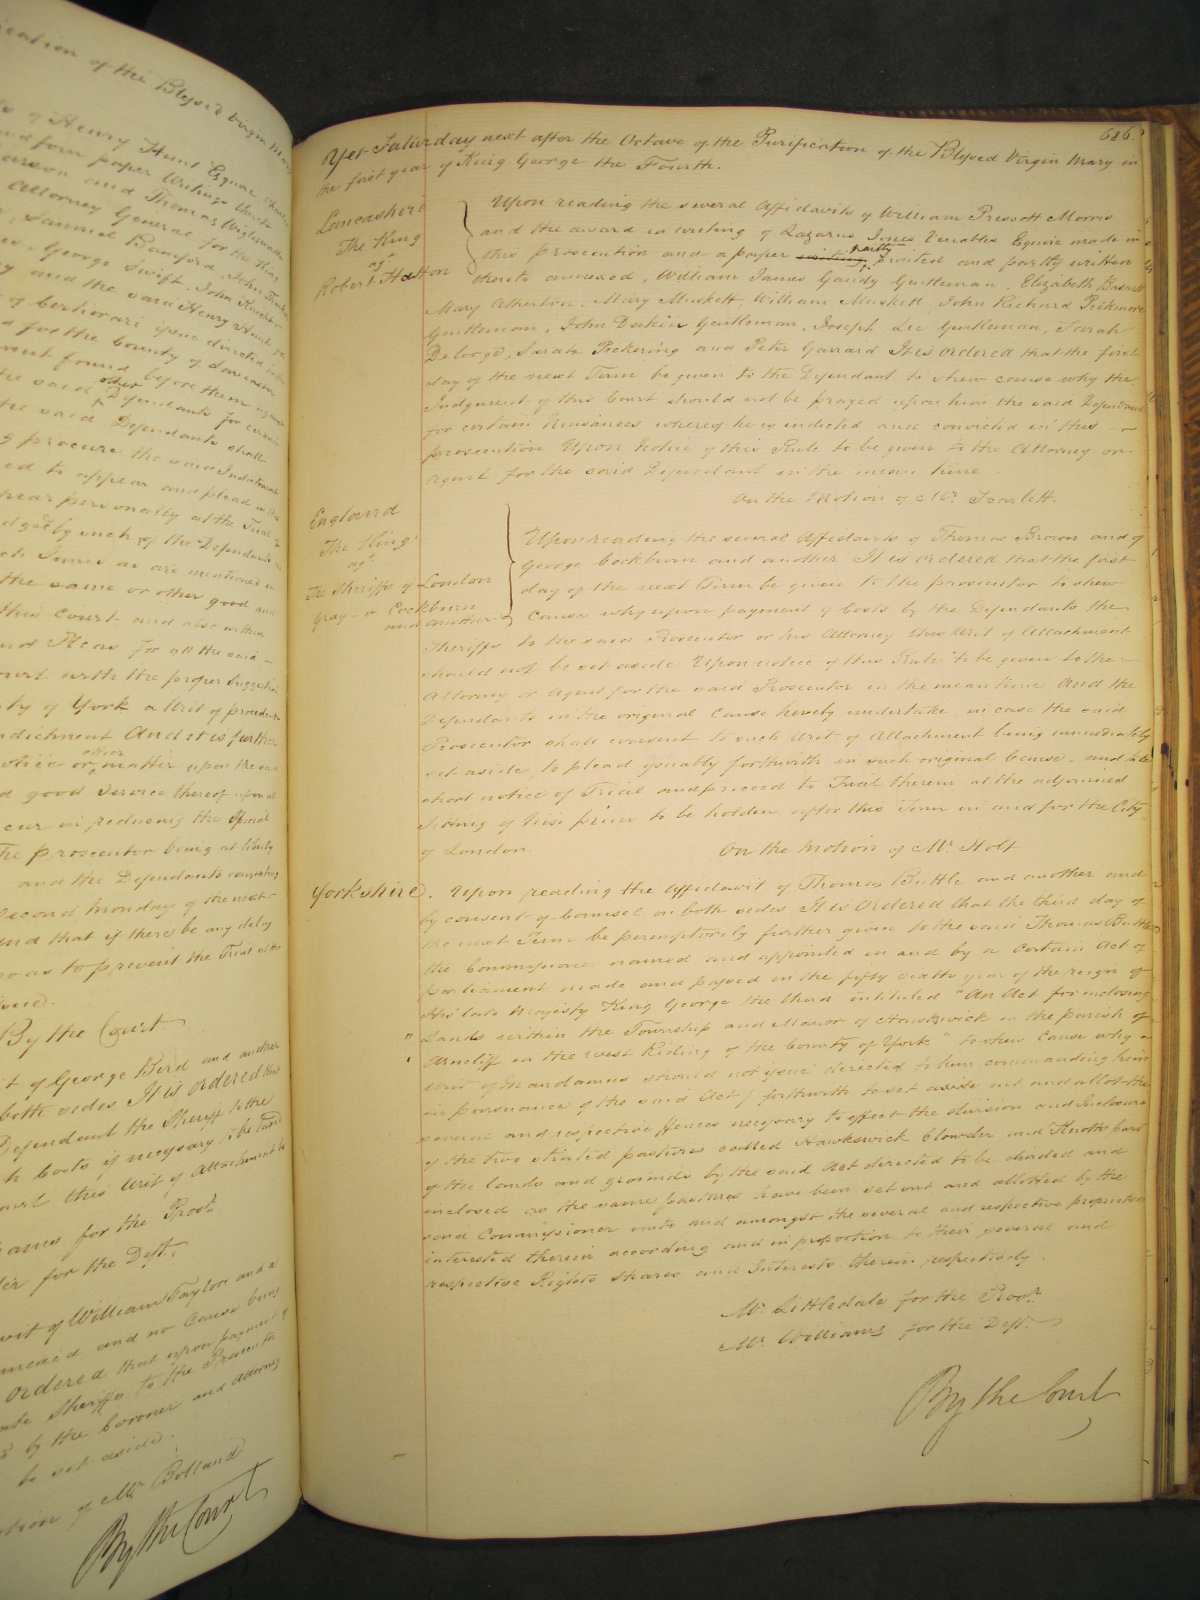 ication of the Blessed Virgin Mary
of Henry Hunt Esquire
and four paper Writings
and Thomas
Attorney General for the King
Samuel Bamford, John
George Swift, John Knight
and the said Henry Hunt
of Certiorari your directed
for the County of Lancaster
found before them
the said other Defendants for certain
the said Defendants shall
procure the said Indictment
ed to appear and plead
personally at the Trial
by such of the Defendants
as are mentioned
the same or other good and
this Court and also within
and Pleas for all the said
ourt with the proper Suggestion
ty of York a Writ of
ndictment And it is further
or other matter upon the said
good service thereof upon
cur in reducing the Special
The prosecutor being at liberty
and the Defendants consenting
Second Monday of the next
and that if there be any delay
so as to prevent the Trial
By the Court
it of George Bird and another
both sides It is ordered that
Defendant the Sheriff to the
h Costs if necessary to be taxed
ourt this Writ of Attachment
for the Prosr.
for the Deft.
of William Taylor and a
and no Cause being
ordered that upon payment of
Sheriffs to the Prosecutor
by the Coroner and Attorney
be set aside.
of Mr. Bolland
By the Court
686.
Yet Saturday next after the Octave of the Purification of the Blessed Virgin Mary in
the first year of King George the Fourth.
Lancashire
The King
agt.
Robert Hatton
Upon reading the several Affidavits of William Prescott Morris
and the award in writing of Lazarus Jones Venables Esquire made in
this prosecution and a paper writing partly printed and partly written
thereto annexed, William James Gandy Gentleman, Elizabeth
Mary Atherton, Mary Muskett, William Muskett, John Richard Pickmore
Gentleman, John Dakin Gentleman, Joseph Lee Gentleman, Sarah
Sarah Pickering and Peter Garrard It is ordered that the first
day of the next Term be given to the Defendant to shew cause why the
Judgment of this Court should not be prayed upon him the said Defendant
for certain Nuisances whereof he is indicted and convicted in this
prosecution Upon Notice of this Rule to be given to the Attorney or
Agent for the said Defendant in the mean time
On the Motion of Mr. Scarlett.
England
The King
agt.
The Sheriffs of London
Gray v Cockburn
and another
Upon reading the several Affidavits of Thomas Brown and of
George Cockburn and another It is ordered that the first
day of the next Term be given to the prosecutor to shew
Cause why upon payment of Costs by the Defendants the
Sheriffs to the said Prosecutor or his Attorney this Writ of Attachment
should not be set aside Upon notice of this Rule to be given to the
Attorney or Agent for the said Prosecutor in the mean time And the
Defendants in the original Cause hereby undertake in case the said
Prosecutor shall consent to such Writ of Attachment being immediately
set aside, to plead issuably forthwith in such original Cause, and take
short notice of Trial and proceed to Trial therein at the adjourned
Sitting of Nisi prius to be holden after this Term in and for the City
of London.
On the Motion of Mr. Holt
Yorkshire. Upon reading the Affidavit of Thomas Buttle and another and
by consent of Counsel on both sides It is ordered that the third day of
the next Term be peremptorily further given to the said Thomas Buttle
the Commissioner named and appointed in and by a certain Act of
Parliament made and passed in the fifty sixth year of the reign of
His late Majesty King George the third intituled "An Act for inclosing
" Lands within the Township and Manor of Hawkswick in the parish of
" Arncliff in the West Riding of the County of York" to shew Cause why a
Writ of Mandamus should not issue directed to him commanding him
in pursuance of the said Act / forthwith to set aside out and allot the
several and respective fences necessary to effect the division and Inclosure
of the two stinted pastures called Hawkswick Clowder and
of the lands and grounds by the said Act directed to be divided and
inclosed as the same pastures have been set out and allotted by the
said Commissioner unto and amongst the several and respective proprietors
interested therein according and in proportion to their several and
respective Rights Shares and Interests therein respectively.
Mr. Littledale for the Prosr.
Mr. Williams for the Deft.
By the Court